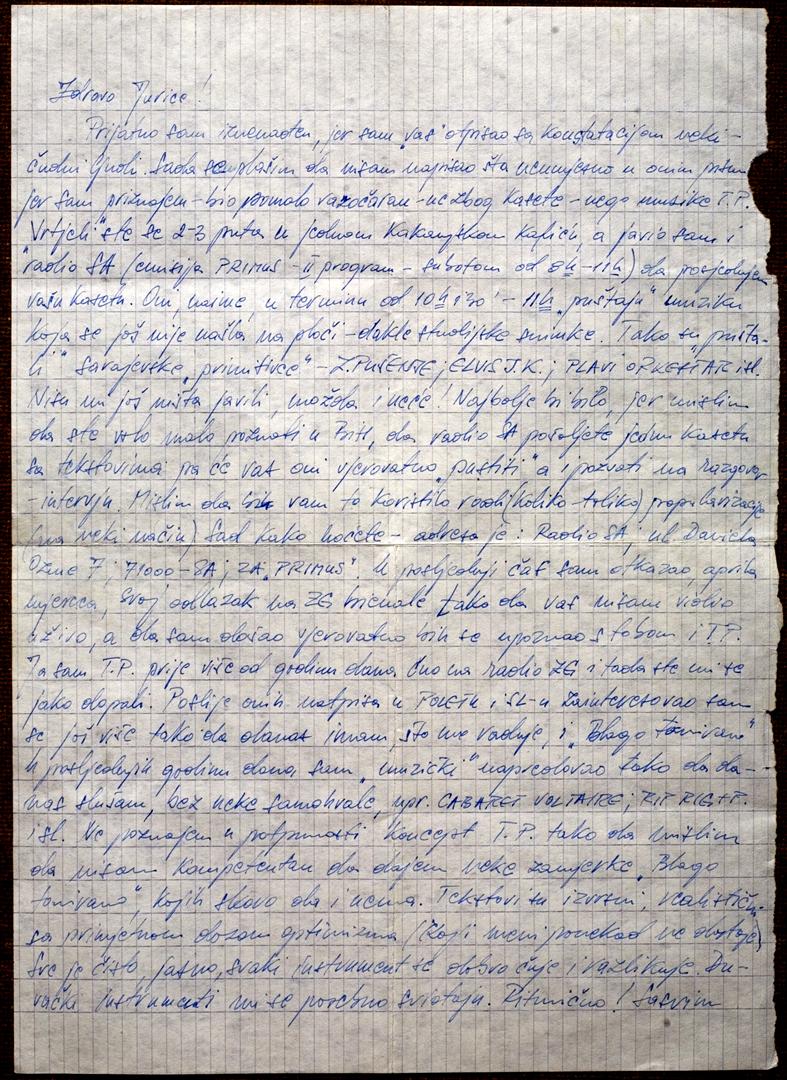 Zdravo Jurice!
Prijatno sam iznenađen, jer sam "vas" otpisao sa konstatacijom neki-
čudni ljudi. Sada se plašim da nisam napisao šta neumjesno u onim
jer sam priznajem - bio pomalo razočaran - ne zbog kasete - nego muzike T.P.
"Vrtjeli" ste se 2-3 puta u jednom Kakanjskom kafiću, a javio sam i
radio SA (emisija PRIMUS - II program - subotom od 8h - 11h) da posjedujem
vašu kasetu. Oni, naime, u terminu od 10h i 30' - 11h "puštaju" muziku
koja se još nije našla na ploči - dakle studijske snimke. Tako su "pušta-
li" Sarajevske "primitivce" - Z.PUŠENJE; ELVIS J.K.; PLAVI ORKESTAR isl.
Nisu mi još ništa javili, možda i neće! Najbolje bi bilo, jer mislim
da ste vrlo malo poznati u BiH, da radio SA pošaljete jednu kasetu
sa tekstovima pa će vas oni vjerovatno "pustiti" a i pozvati na razgovor
- intervju. Mislim da bi vam to koristilo radi (koliko - toliko) popularizacije
(na neki način) Sad kako hoćete - adresa je: Radio SA, ul. Danijela
Ozme 7; 71000 - SA; ZA "PRIMUS" U posljednji čas sam otkazao, aprila
mjeseca, svoj odlazak na ZG bienale tako da vas nisam vidio
uživo, a da sam došao vjerovatno bih se upoznao s tobom i T.P.
Ja sam T.P. prije više od godinu dana čuo na radio ZG i tada ste mi se
jako dopali. Poslije onih natpisa u POLETU i SL-u zainteresovao sam
se još više tako da danas imam, što me raduje, i "Blago tonirano"
U posljednjih godinu dana sam "muzički" napredovao tako da da-
nas slušam, bez neke samohvale, npr. CABARET VOLTAIRE; RIP RIG + P.
isl. Ne poznajem u potpunosti koncept T.P. tako da mislim
da nisam kompetentan da dajem neke zamjerke "Blago
tonirano", kojih skoro da i nema. Tekstovi su izvrsni, realistični,
sa primjetnom dozom optimizma (koji meni ponekad ne dostaje)
Sve je čisto, jasno, svaki instrument se dobro čuje i razlikuje. Du-
vački instrumenti mi se posebno sviđaju. Ritmično! Sasvim